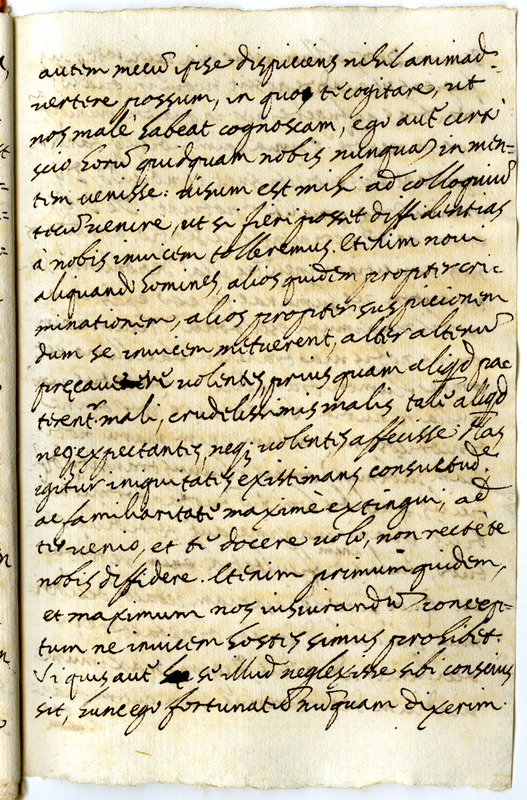 autem mecū ipse dispiciens nihil animad-
vertere possum, in quo tē cogitare, ut
nos malè habeat cognoscam, ego autē certè
scio horū quidquam nobis nunquā in men=
tem venisse: visum est mihi ad colloquiū
tecū venire, ut si fieri posset diffidentias
à nobis invicem tolleremus. Etenim novi
aliquando homines, alios quidem propter cri-
minationem, alios propter suspicionem
dum se invicem metuerent, alter alterū
præcavere volentes, priusquam aliqd pa
terentr mali, crudelissimis malis tale aliqd
neq expectantes, neq; volentes affecisse. Has
igitur iniquitates existimans consuetud.e
ac familiaritatē maximè extingui, ad
te venio, et tē docere volo, non rectè te
nobis diffidere. Etenim primum quidem,
et maximum nos iusiurandū concep=
tum ne invicem hostes simus prohibet.
Si quis autē se illud neglexisse sibi conscius
sit, hunc ego fortunatū nūquam dixerim.